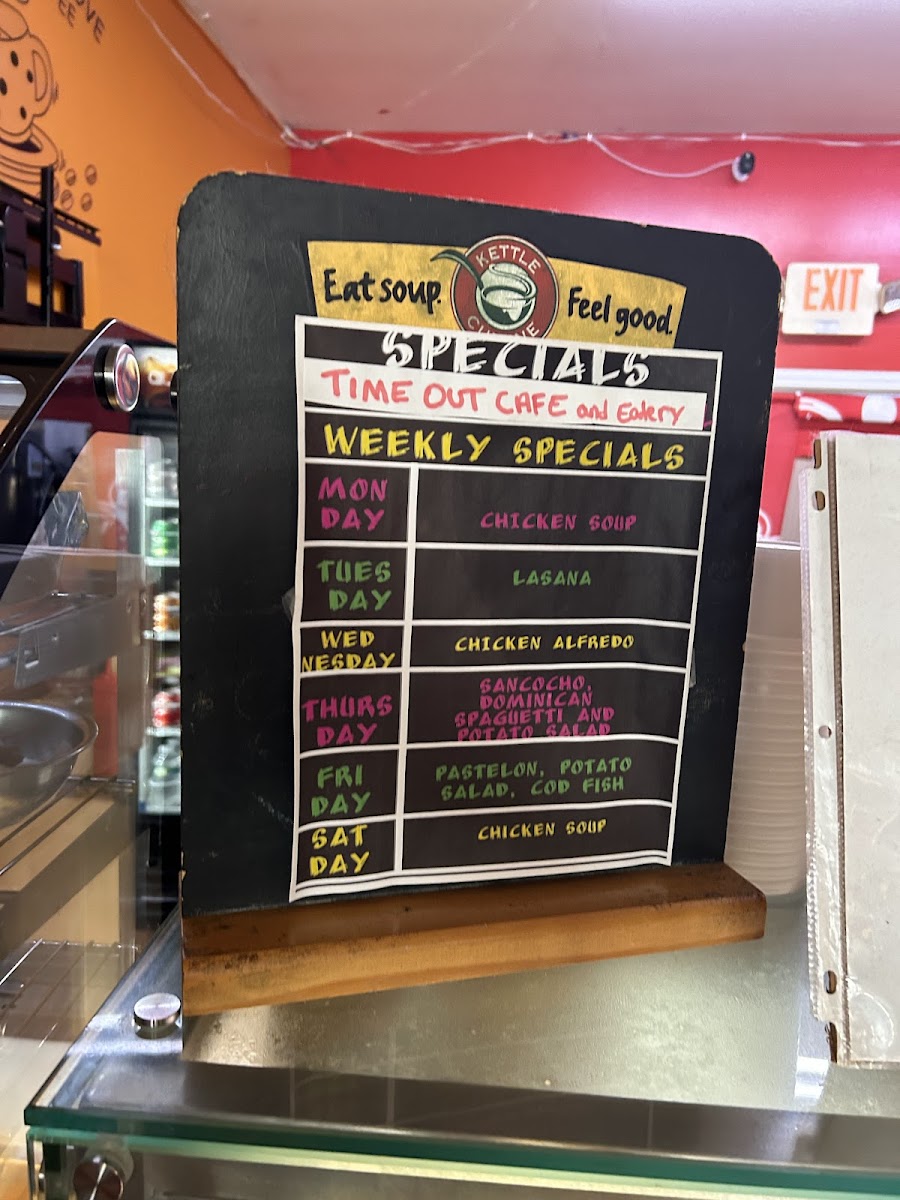 Eat soup.
KETTLE
CUISINE
Feel good.
EXIT
SPECIALS
TIME OUT CAFE and Eatery
WEEKLY SPECIALS
MON
DAY
CHICKEN SOUP
TUES
DAY
LASANA
WED
NESDAY
CHICKEN ALFREDO
THURS
DAY
SANCOCHO,
DOMINICAN
SPAGUETTI AND
POTATO SALAD
FRI
DAY
PASTELON, POTATO
SALAD, COD FISH
SAT
DAY
CHICKEN SOUP